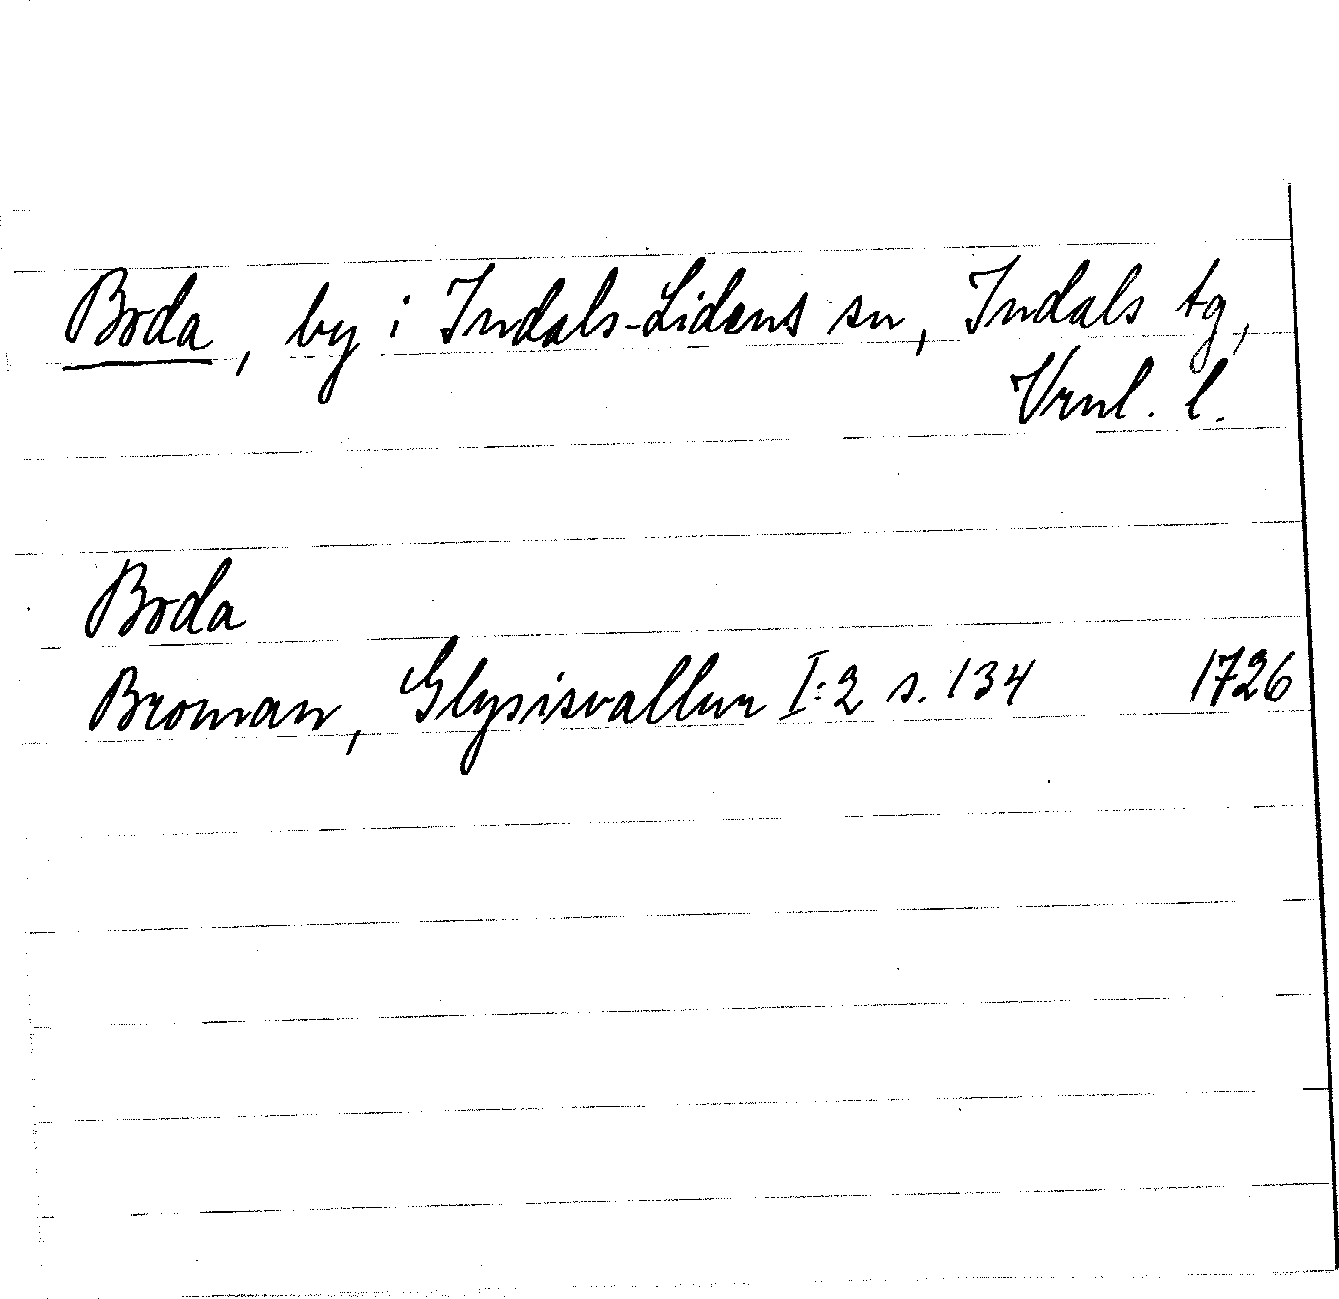 Boda, by i Indals-Lidens sn, Indals tg,
Vrnl. l.
Boda
Broman, Glysisvallur I:2 s. 134 1726